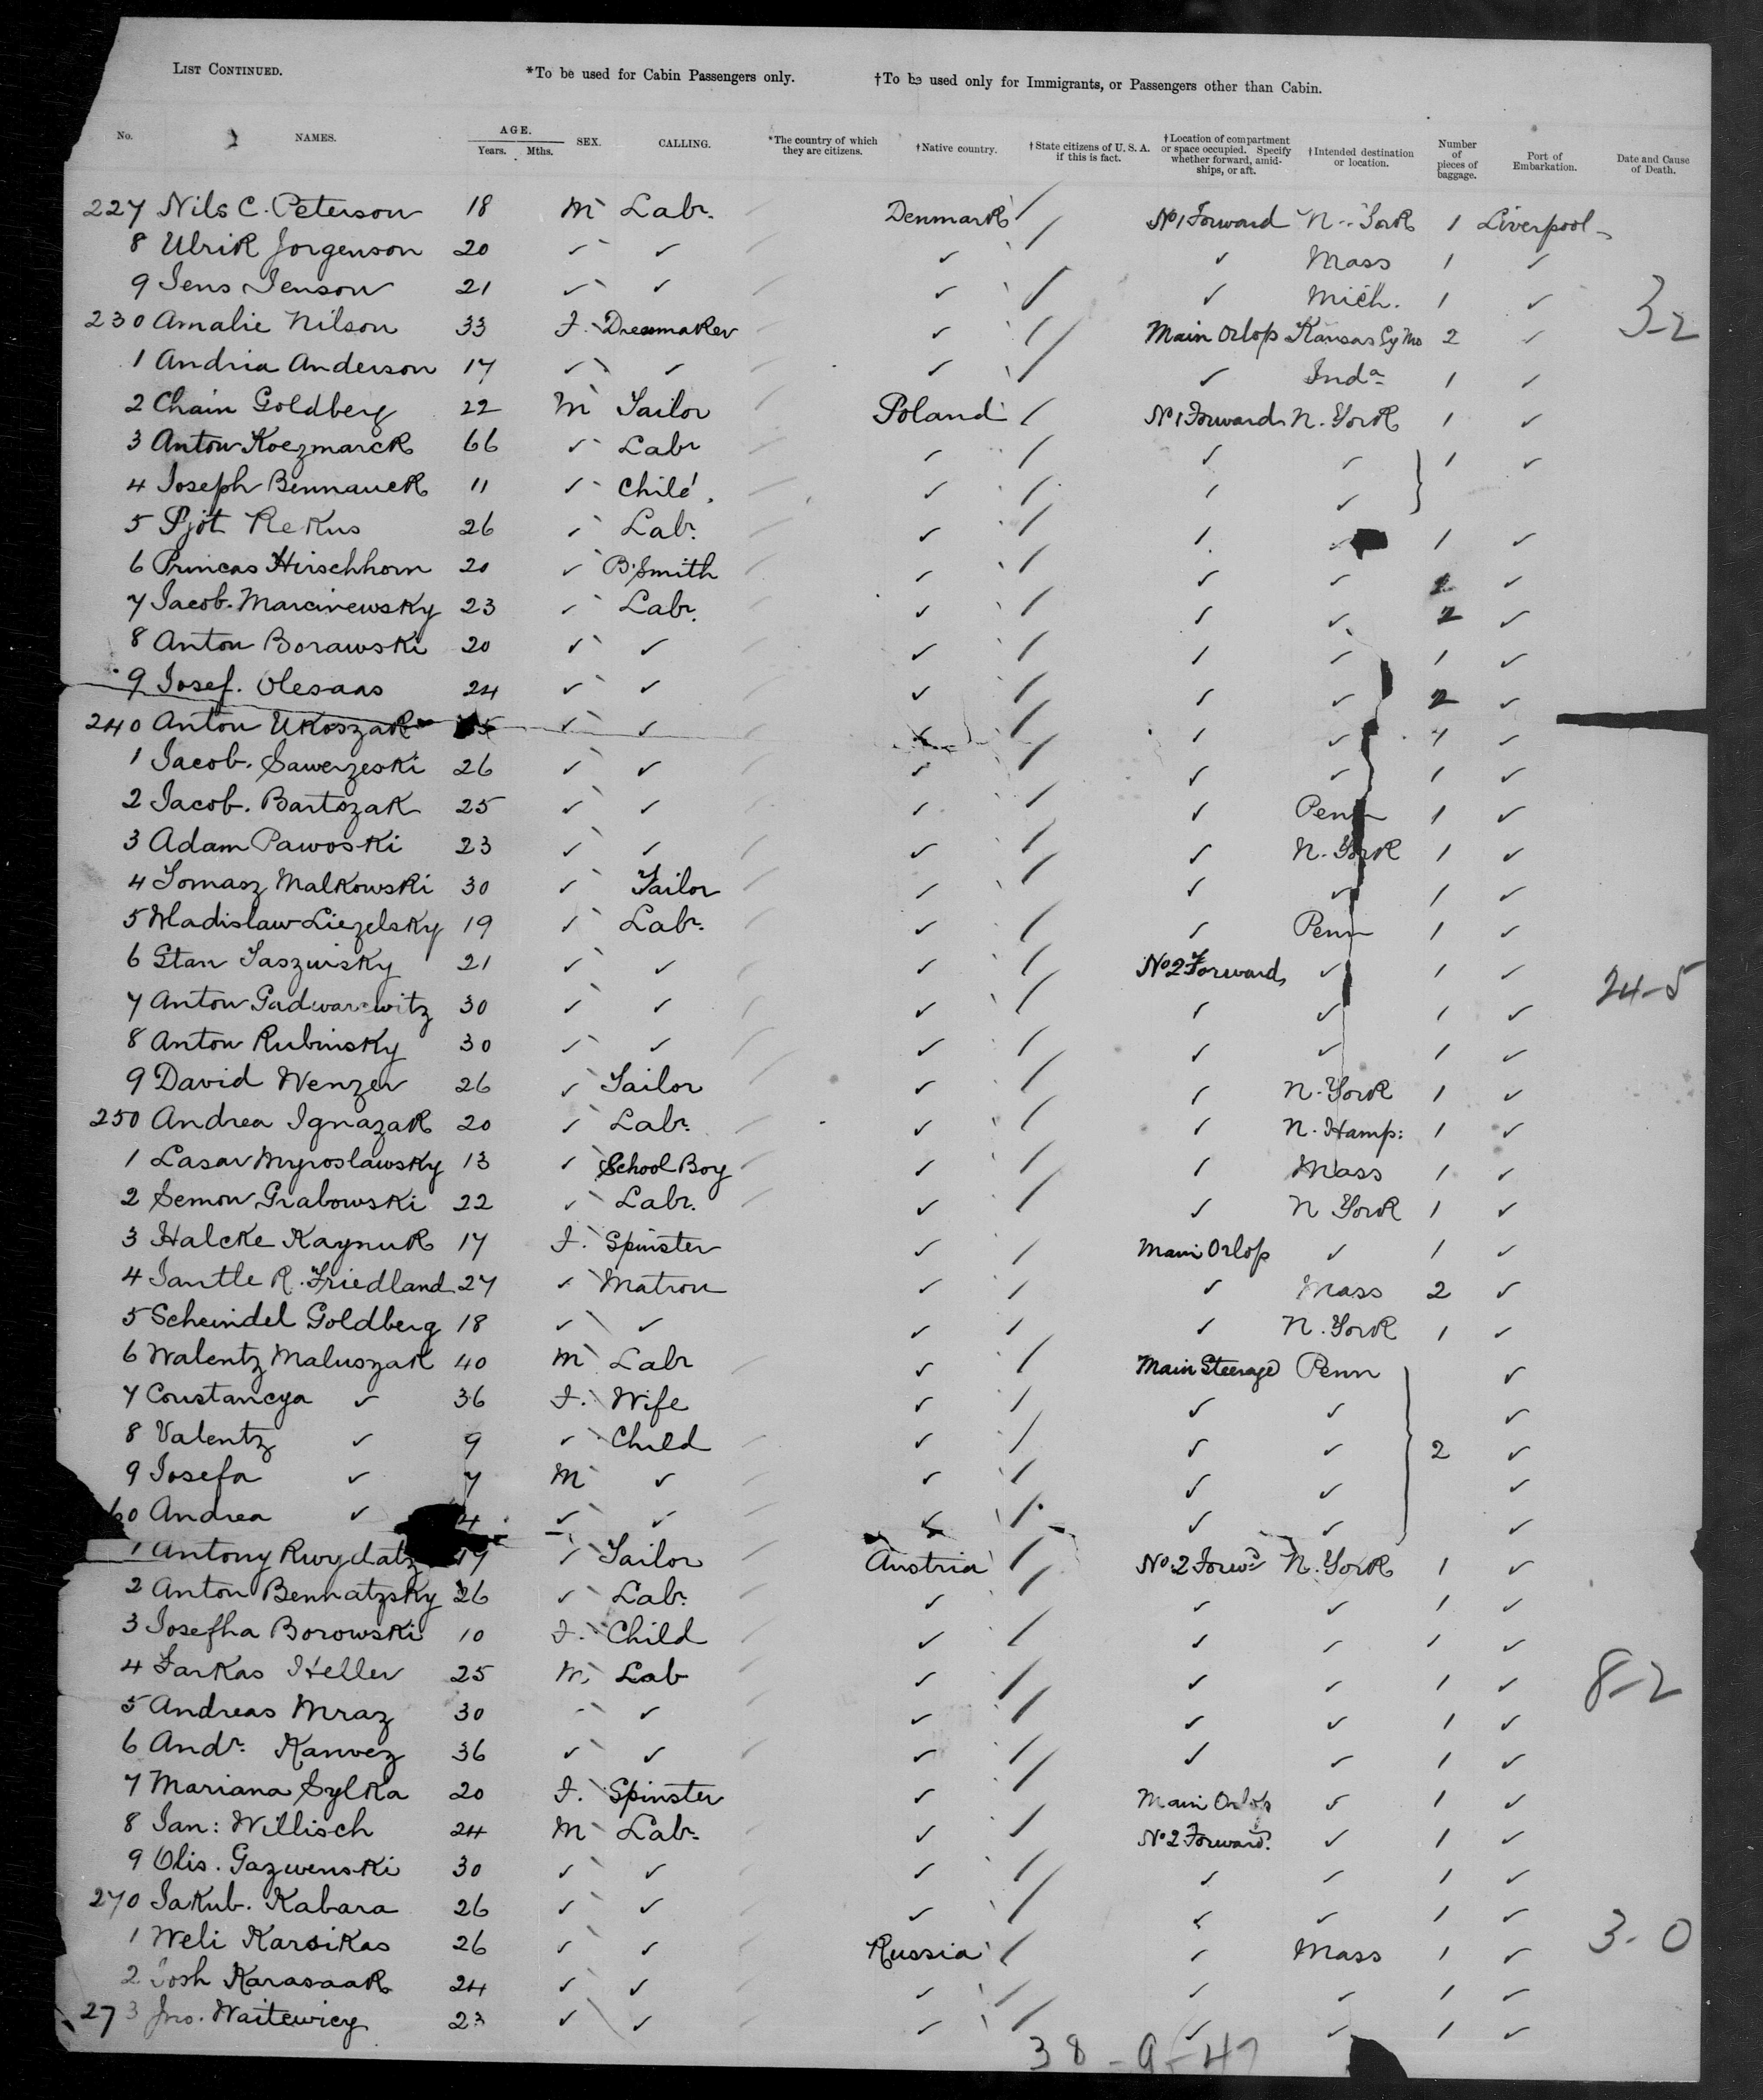 List Continued. *To be used for Cabin Passengers only. †To be used only for Immigrants, or Passengers other than Cabin.
No. NAMES. AGE. Years. Mths. SEX. CALLING. *The country of which they are citizens. †Native country. †State citizens of U. S. A. if this is fact. †Location of compartment or space occupied. Specify whether forward, amid-ships, or aft. †Intended destination or location. Number of pieces of baggage. Port of Embarkation. Date and Cause of Death.
227 Nils C. Peterson 18 M Labr. Denmark / No 1 Forward N. York 1 Liverpool
8 Ulrik Jorgenson 20 ✓ ✓ ✓ / ✓ Mass 1 ✓
9 Jens Jenson 21 ✓ ✓ ✓ / ✓ Mich. 1 ✓
230 Amalie Nilson 33 F. Dressmaker ✓ / Main Orlop Kansas Cy Mo 2 ✓ 3-2
1 Andria Anderson 17 ✓ ✓ ✓ / ✓ Inda 1 ✓
2 Chain Goldberg 22 M Tailor Poland / No 1 Forward N. York 1 ✓
3 Anton Koezmarck 66 ✓ Labr ✓ / ✓ ✓ 1 ✓
4 Joseph Bennauek 11 ✓ Child ✓ / ✓ ✓
5 Pjot Rekus 26 ✓ Labr. ✓ / ✓ ✓ 1 ✓
6 Princas Hirschhorn 20 ✓ B. Smith ✓ / ✓ ✓ ✓
7 Jacob. Marcinewsky 23 ✓ Labr. ✓ / ✓ ✓ 2 ✓
8 Anton Borawski 20 ✓ ✓ ✓ / ✓ ✓ 1 ✓
9 Josef. Olesaas 24 ✓ ✓ ✓ / ✓ ✓ 2 ✓
240 Anton Ukoszak ✓ ✓ ✓ / ✓ ✓ 1 ✓
1 Jacob. Sawerzeski 26 ✓ ✓ ✓ / ✓ ✓ 1 ✓
2 Jacob. Bartozak 25 ✓ ✓ ✓ / ✓ Penn 1 ✓
3 Adam Pawoski 23 ✓ ✓ ✓ / ✓ N. York 1 ✓
4 Tomasz Malkowski 30 ✓ Tailor ✓ / ✓ ✓ 1 ✓
5 Wladislaw Liezelsky 19 ✓ Labr. ✓ / ✓ Penn 1 ✓
6 Stan Jaszwisky 21 ✓ ✓ ✓ / No 2 Forward ✓ 1 ✓ 24-5
7 Anton Gadwarowitz 30 ✓ ✓ ✓ / ✓ ✓ 1 ✓
8 Anton Rubinsky 30 ✓ ✓ ✓ / ✓ ✓ 1 ✓
9 David Wenzer 26 ✓ Tailor ✓ / ✓ N. York 1 ✓
250 Andrea Ignazak 20 ✓ Labr. ✓ / ✓ N. Hamp: 1 ✓
1 Lasar Myroslawsky 13 ✓ School Boy ✓ / ✓ Mass 1 ✓
2 Semon Grabowski 22 ✓ Labr. ✓ / ✓ N York 1 ✓
3 Halcke Kaynuk 17 F. Spinster ✓ / Main Orlop ✓ 1 ✓
4 Jantle R. Friedland 27 ✓ Matron ✓ / ✓ Mass 2 ✓
5 Scheindel Goldberg 18 ✓ ✓ ✓ / ✓ N. York 1 ✓
6 Walentz Maluszak 40 M Labr ✓ / Main Steerage Penn ✓
7 Constancya ✓ 36 F. Wife ✓ / ✓ ✓ ✓
8 Valentz ✓ 9 ✓ Child ✓ / ✓ ✓ 2 ✓
9 Josefa ✓ 7 M ✓ ✓ / ✓ ✓ ✓
60 Andrea ✓ 4 ✓ ✓ ✓ / ✓ ✓ ✓
1 Antony Rwydatz ✓ Tailor Austria / No. 2 Forwd N. York 1 ✓
2 Anton Bennatzsky 26 ✓ Labr. ✓ / ✓ ✓ 1 ✓
3 Josefha Borowski 10 F. Child ✓ / ✓ ✓ 1 ✓
4 Farkas Heller 25 M. Lab ✓ / ✓ ✓ 1 ✓ 8-2
5 Andreas Mraz 30 ✓ ✓ ✓ / ✓ ✓ 1 ✓
6 Andr. Kanvez 36 ✓ ✓ ✓ / ✓ ✓ 1 ✓
7 Mariana Sylka 20 F. Spinster ✓ / Main Orlop ✓ 1 ✓
8 Jan: Willisch 24 M Labr. ✓ / No 2 Forward. ✓ 1 ✓
9 Olis. Gazwenski 30 ✓ ✓ ✓ / ✓ ✓ 1 ✓
270 Jakub. Kabara 26 ✓ ✓ ✓ / ✓ ✓ 1 ✓
1 Weli Karsikas 26 ✓ ✓ Russia / ✓ Mass 1 ✓ 3-0
2 Josh Karasaak 24 ✓ ✓ ✓ / ✓ ✓ 1 ✓
273 Jno. Waitewicy 23 ✓ ✓ ✓ / ✓ ✓ 1 ✓
38-9-47